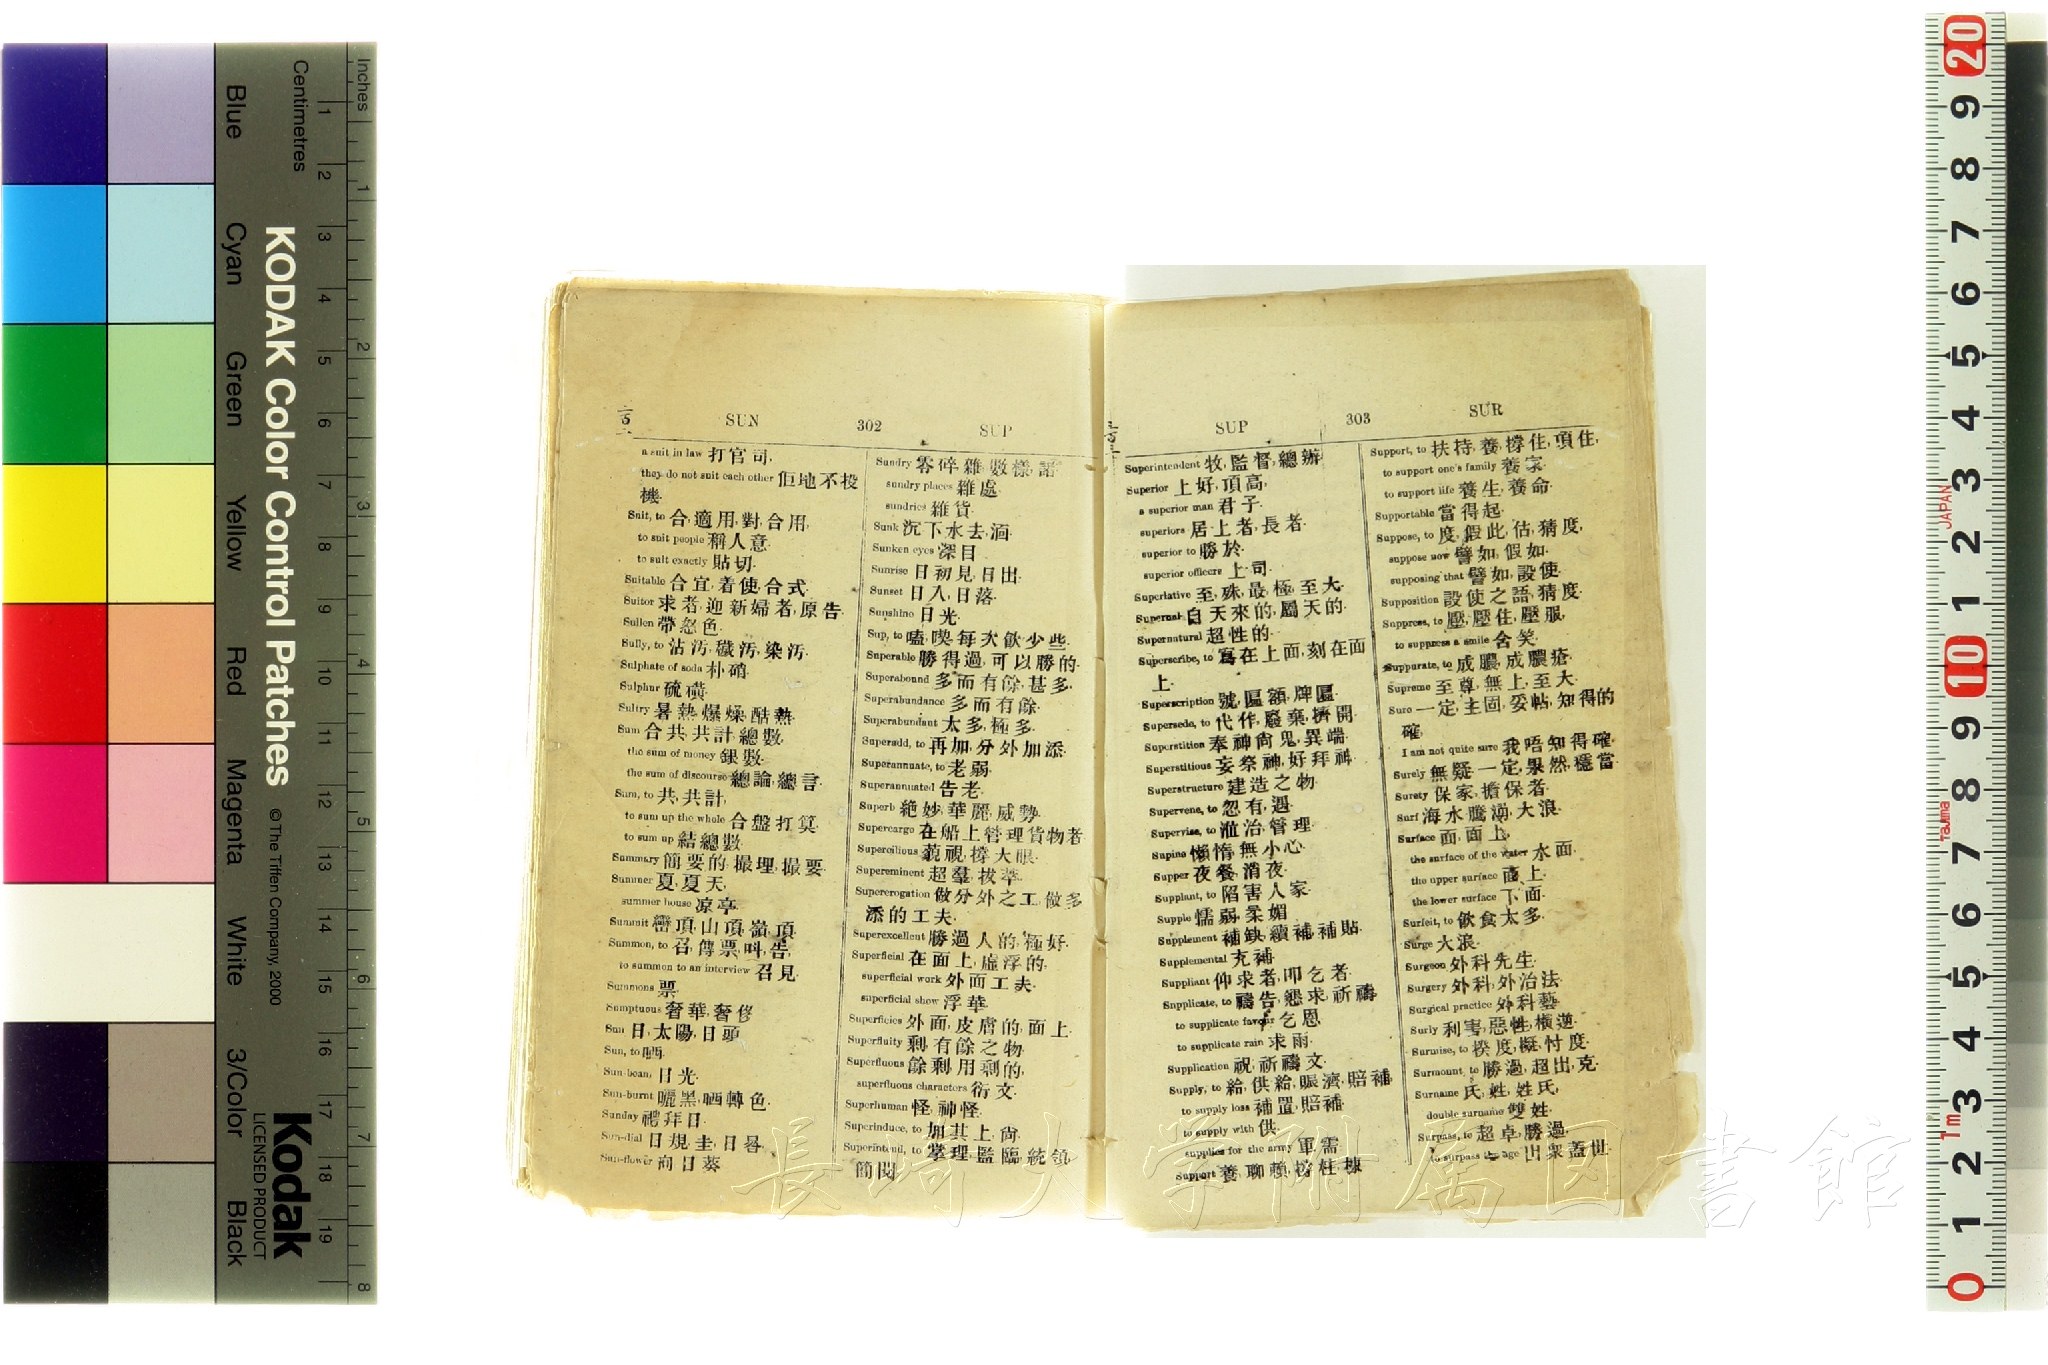 Inches
Centimetres
KODAK Color Control Patches
© The Tiffen Company, 2000
Kodak
LICENSED PRODUCT
Blue
Cyan
Green
Yellow
Red
Magenta
White
3/Color
Black
SUN
302
SUP
a suit in law 打官司.
they do not suit each other 佢地不投
機.
Suit, to 合,適用,對,合用.
to suit people 稱人意.
to suit exactly 貼切.
Suitable 合宜,着使,合式.
Suitor 求者,迎新婦者,原告.
Sullen 帶忿色.
Sully, to 沾汚,穢汚,染汚.
Sulphate of soda 朴硝.
Sulphur 硫磺.
Sultry 暑熱,爆燥,酷熱.
Sum 合共,共計,總數.
the sum of money 銀數.
the sum of discourse 總論,總言.
Sum, to 共,共計.
to sum up the whole 合盤打算.
to sum up 結總數.
Summary 簡要的,撮理,撮要.
Summer 夏,夏天.
summer house 凉亭.
Summit 巒頂,山頂,嶺頂.
Summon, to 召,傳票,叫,告.
to summon to an interview 召見.
Summons 票.
Sumptuous 奢華,奢侈
Sun 日,太陽,日頭
Sun, to 晒.
Sun-beam, 日光.
Sun-burnt 曬黑,晒轉色.
Sunday 禮拜日.
Sun-dial 日規圭,日晷.
Sun-flower 向日葵
Sundry 零碎,雜,數樣,諸
sundry places 雜處.
sundries 雜貨.
Sunk 沉下水去,湎.
Sunken eyes 深目
Sunrise 日初見,日出.
Sunset 日入,日落.
Sunshine 日光.
Sup, to 嗑,喫,每次飲少些.
Superable 勝得過,可以勝的.
Superabound 多而有餘,甚多.
Superabundance 多而有餘.
Superabundant 太多,極多.
Superadd, to 再加,分外加添.
Superannuate, to 老弱.
Superannuated 告老.
Superb 絶妙,華麗,威勢.
Supercargo 在船上管理貨物者
Supercilious 藐視,撐大眼.
Supereminent 超羣,拔萃.
Supererogation 做分外之工,做多
添的工夫.
Superexcellent 勝過人的,極好.
Superficial 在面上,虛浮的.
superficial work 外面工夫.
superficial show 浮華
Superficies 外面,皮膚的,面上.
Superfluity 剩,有餘之物.
Superfluous 餘剩,用剩的.
superfluous characters 衍文.
Superhuman 怪,神怪.
Superinduce, to 加其上,尙.
Superintend, to 掌理,監臨,統領
簡閱.
SUP
303
SUR
Superintendent 牧,監督,總辦
Superior 上好,頂高.
a superior man 君子.
superiors 居上者,長者.
superior to 勝於.
superior officers 上司.
Superlative 至,殊,最,極,至大.
Supernal 自天來的,屬天的.
Supernatural 超性的.
Superscribe, to 寫在上面,刻在面
上.
Superscription 號,匾額,牌匾.
Supersede, to 代作,廢棄,擠開
Superstition 奉神尙鬼,異端.
Superstitious 妄祭神,好拜神.
Superstructure 建造之物
Supervene, to 忽有,遇.
Supervise, to 涖治,管理.
Supine 懶惰,無小心.
Supper 夜餐,消夜.
Supplant, to 陷害人家.
Supple 懦弱,柔媚
Supplement 補缺,續補,補貼.
Supplemental 充補.
Suppliant 仰求者,叩乞者.
Supplicate, to 禱告,懇求,祈禱.
to supplicate favour 乞恩
to supplicate rain 求雨.
Supplication 祝,祈禱文.
Supply, to 給,供給,賑濟,賠補
to supply loss 補置,賠補
to supply with 供.
supplies for the army 軍需
Support 養,聊賴,撐柱,棟
Support, to 扶持,養,撐住,頂住,
to support one's family 養家.
to support life 養生,養命.
Supportable 當得起.
Suppose, to 度,假此,估,猜度,
suppose now 譬如,假如.
supposing that 譬如,設使.
Supposition 設使之語,猜度.
Suppress, to 壓,壓住,壓服,
to suppress a smile 含笑.
Suppurate, to 成膿,成膿瘡.
Supreme 至尊,無上,至大.
Sure 一定,主固,妥帖,知得的
確.
I am not quite sure 我唔知得確.
Surely 無疑,一定,果然,穩當.
Surety 保家,擔保者.
Surf 海水騰湧,大浪.
Surface 面,面上.
the surface of the water 水面.
the upper surface 面上.
the lower surface 下面.
Surfeit, to 飲食太多.
Surge 大浪.
Surgeon 外科先生.
Surgery 外科,外治法.
Surgical practice 外科藝.
Surly 利害,惡性,橫逆.
Surmise, to 揆度,擬,忖度.
Surmount, to 勝過,超出,克.
Surname 氏,姓,姓氏,
double surname 雙姓.
Surpass, to 超卓,勝過,
to surpass the age 出衆蓋世.
長崎大学附属図書館
JAPAN
Tajima
1m